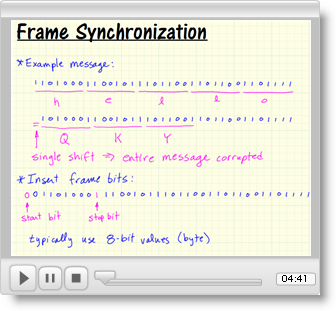 Frame Synchronization
* Example message:
11010001100101110110011011001101111
h e l l o
= 1010001100101110110011011001101111
Q K Y
single shift ⇒ entire message corrupted
* Insert frame bits:
start bit stop bit
typically use 8-bit values (byte)
04:41